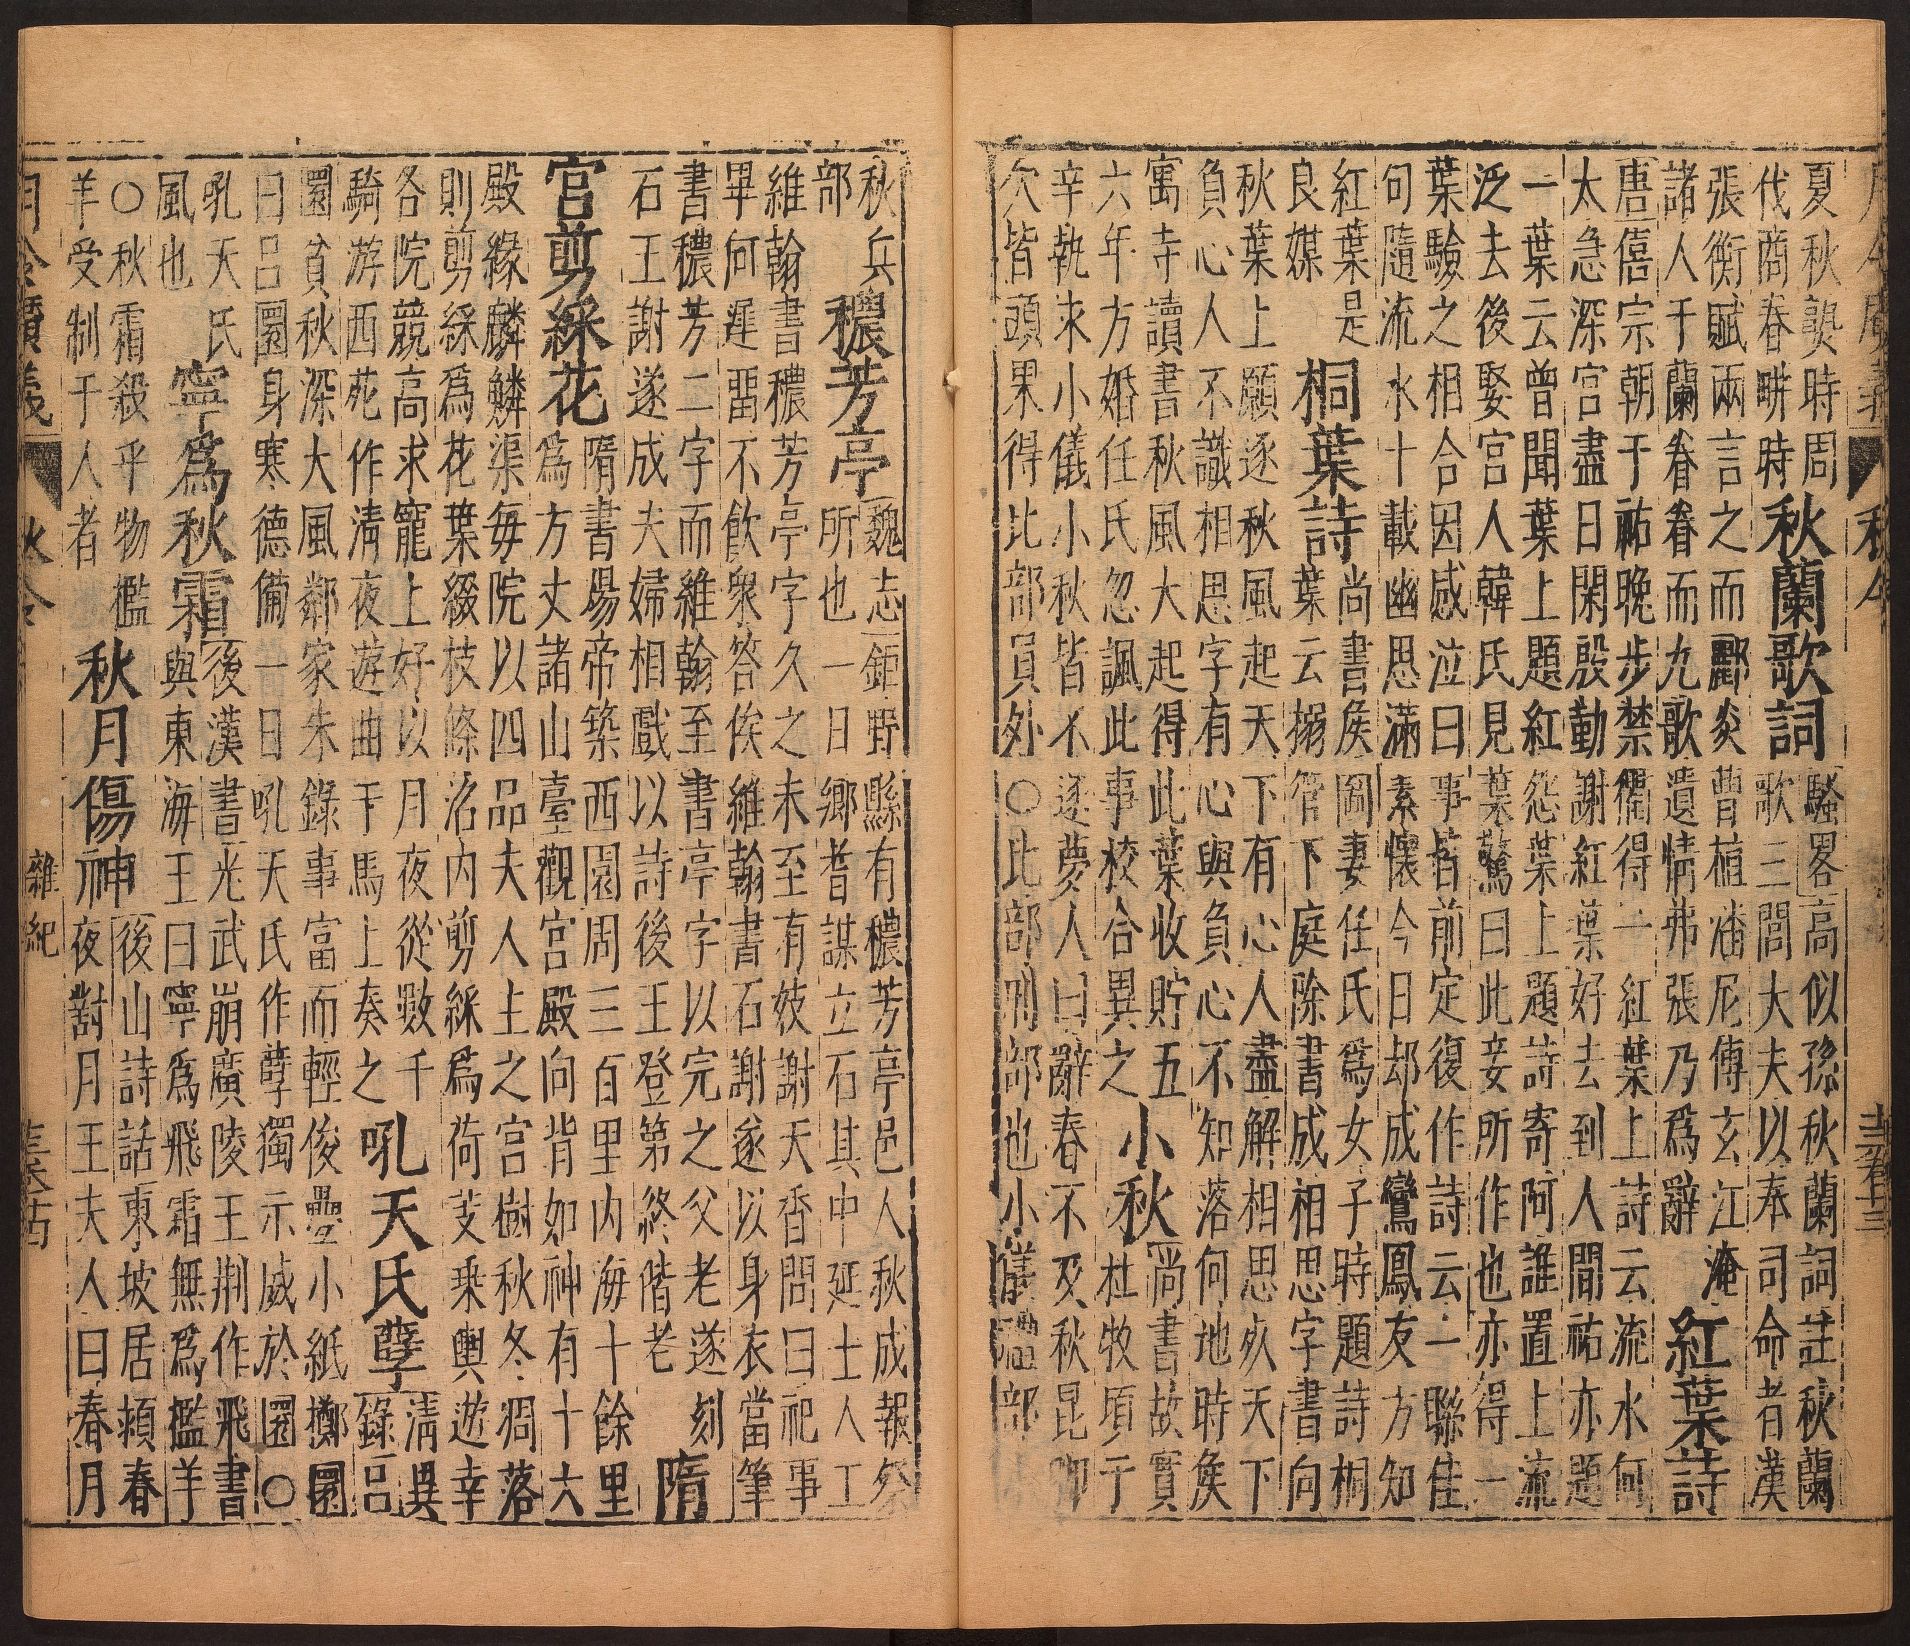 月令廣義 秋令 卷十三
夏秋䙝時周
伐商春畊時
秋蘭歌詞
騷畧高似孫秋蘭詞註秋蘭
歌三閭大夫以奉司命者漢
張衡賦兩言之而酈炎曹植潘尼傅玄江淹
諸人于蘭眷眷而九歌遺情弗張乃爲辭
紅葉詩
唐僖宗朝于祐晚步禁衢得一紅葉上詩云流水何
太急深宮盡日閑殷勤謝紅葉好去到人間祐亦題
一葉云曾聞葉上題紅怨葉上題詩寄阿誰置上流
泛去後娶宮人韓氏見葉驚曰此妾所作也亦得一
葉驗之相合因感泣曰事皆前定復作詩云一聯佳
句隨流水十載幽思滿素懷今日却成鸞鳳友方知
紅葉是
良媒
桐葉詩
尚書侯圖妻任氏爲女子時題詩桐
葉云搦管下庭除書成相思字書向
秋葉上願逐秋風起天下有心人盡解相思死天下
負心人不識相思字有心與負心不知落何地時侯
寓寺讀書秋風大起得此葉收貯五
六年方婚任氏忽諷此事校合異之
小秋
尚書故實
杜牧頃于
辛執求小儀小秋皆不遂夢人曰辭春不及秋昆卹
欠皆頭果得比部員外〇比部刑部也小儀禮部
秋兵
部
穠芳亭
魏志鉅野縣有穠芳亭邑人秋成報祭
所也一日鄉耆謀立石其中延士人工
維翰書穠芳亭字久之未至有妓謝天香問曰祀事
畢何遲畱不飲衆答俟維翰書石謝遂以身衣當筆
書穠芳二字而維翰至書亭字以完之父老遂刻
石王謝遂成夫婦相戲以詩後王登第終偕老
隋
宮剪綵花
隋書煬帝築西園周三百里内海十餘里
爲方丈諸山臺觀宮殿向背如神有十六
殿緣麟鱗渠每院以四品夫人主之宮樹秋冬凋落
則剪綵爲花葉綴枝條沼内剪綵爲荷芰乗輿遊幸
各院競高求寵上好以月夜從數千
騎游西苑作淸夜遊曲于馬上奏之
吼天氏孽
淸異
錄呂
圜貧秋深大風鄰家朱錄事富而輕俊疊小紙擲圜
曰呂圜身寒德備一日吼天氏作孽獨示威於圜〇
吼天氏
風也
寧爲秋霜
後漢書光武崩廣陵王荆作飛書
與東海王曰寧爲飛霜無爲檻羊
〇秋霜殺乎物檻
羊受制于人者
秋月傷神
後山詩話東坡居頴春
夜對月王夫人曰春月
月令廣義 秋令 雜紀